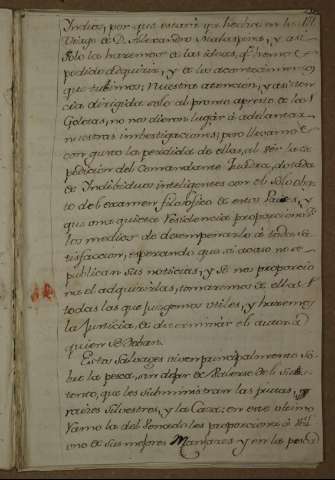 Yndios, por que estará ya hecha en la
Viage de D. Alexandro Malaspina, y asi
solo la haremos de las ideas, q.e hemos
podido adquirir, y de los acontecimientos
que tubimos; Nuestra atencion, y asisten
cia dirigida solo al pronto apresto de las
Goletas, no nos dieron lugar á adelantar
nuestras imbestigaciones; pero llevamos
con gusto la perdida de ellas, al ver la ex
pedicion del Comandante Quadra, dotada
de Yndibiduos inteligentes con el solo obje
to del examen filosofico de estos Paises, y
que una quieta Residencia proporciona
los medios de desempeñarlo á toda sa
tisfaccion, esperando que si acaso no se
publican sus noticias, y se nos proporcio
na el adquirirlas, tomaremos de ellas
todas las que juzguemos utiles, y haremos
la Justicia, de determinar el autor á
quien se deban.
Estos Salvages viven principalmente so
bre la pesca, sin dejar de valerse del suste
nto, que les subministran las frutas, y
raices silvestres, y la Caza: en este ultimo
Ramo la del Venado les proporciona
uno de sus mejores Manjares y en la pesca